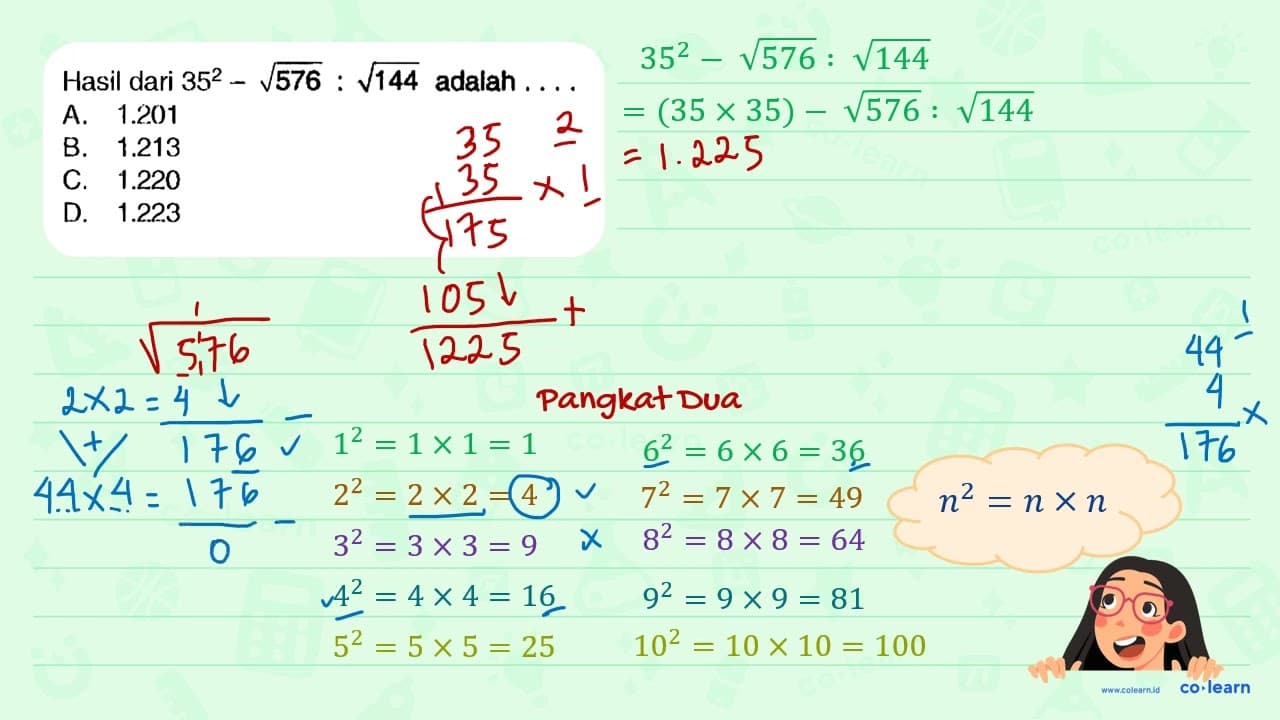 Hasil dari 35² – √576 : √144 adalah . . . .
A. 1.201
B. 1.213
C. 1.220
D. 1.223
35² − √576 : √144
= (35 × 35) − √576 : √144
= 1.225
35 2
35 × 1
1
175
105↓ +
1225
1
√5,76
2×2 = 4 ↓ –
\+/ 176 ✓
44×4 = 176 –
0
1
44
4 ×
176
Pangkat Dua
1² = 1 × 1 = 1
2² = 2 × 2 = 4 ✓
3² = 3 × 3 = 9 ×
✓4² = 4 × 4 = 16
5² = 5 × 5 = 25
6² = 6 × 6 = 36
7² = 7 × 7 = 49
8² = 8 × 8 = 64
9² = 9 × 9 = 81
10² = 10 × 10 = 100
n² = n × n
www.colearn.id co·learn